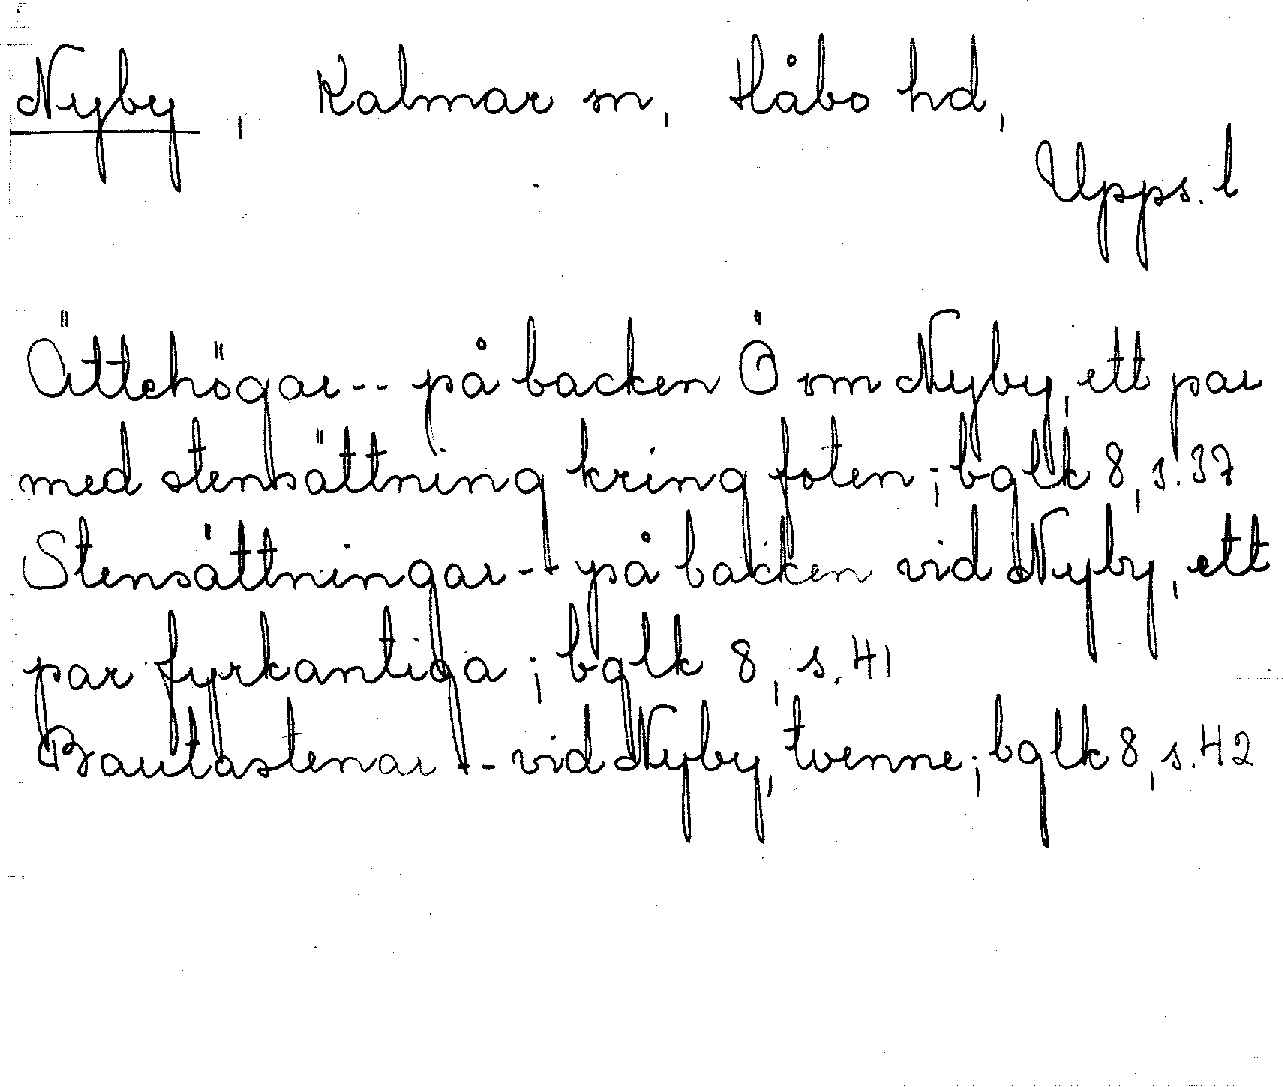 Nyby, Kalmar sn, Håbo hd,
Upps. l
Ättehögar -- på backen Ö om Nyby, ett par
med stensättning kring foten; bglk 8, s. 37
Stensättningar -- på backen vid Nyby, ett
par fyrkantiga; bglk 8, s. 41
Bautastenar -- vid Nyby, tvenne; bglk 8, s. 42